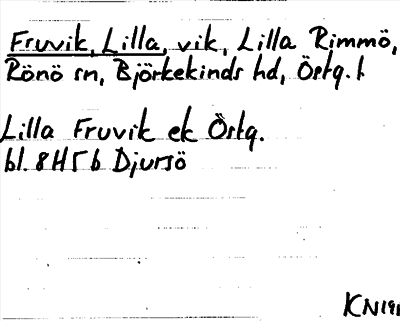 Fruvik, Lilla, vik, Lilla Rimmö,
Rönö sn, Björkekinds hd, Östg. l
Lilla Fruvik ek Östg.
bl. 8H5b Djursö